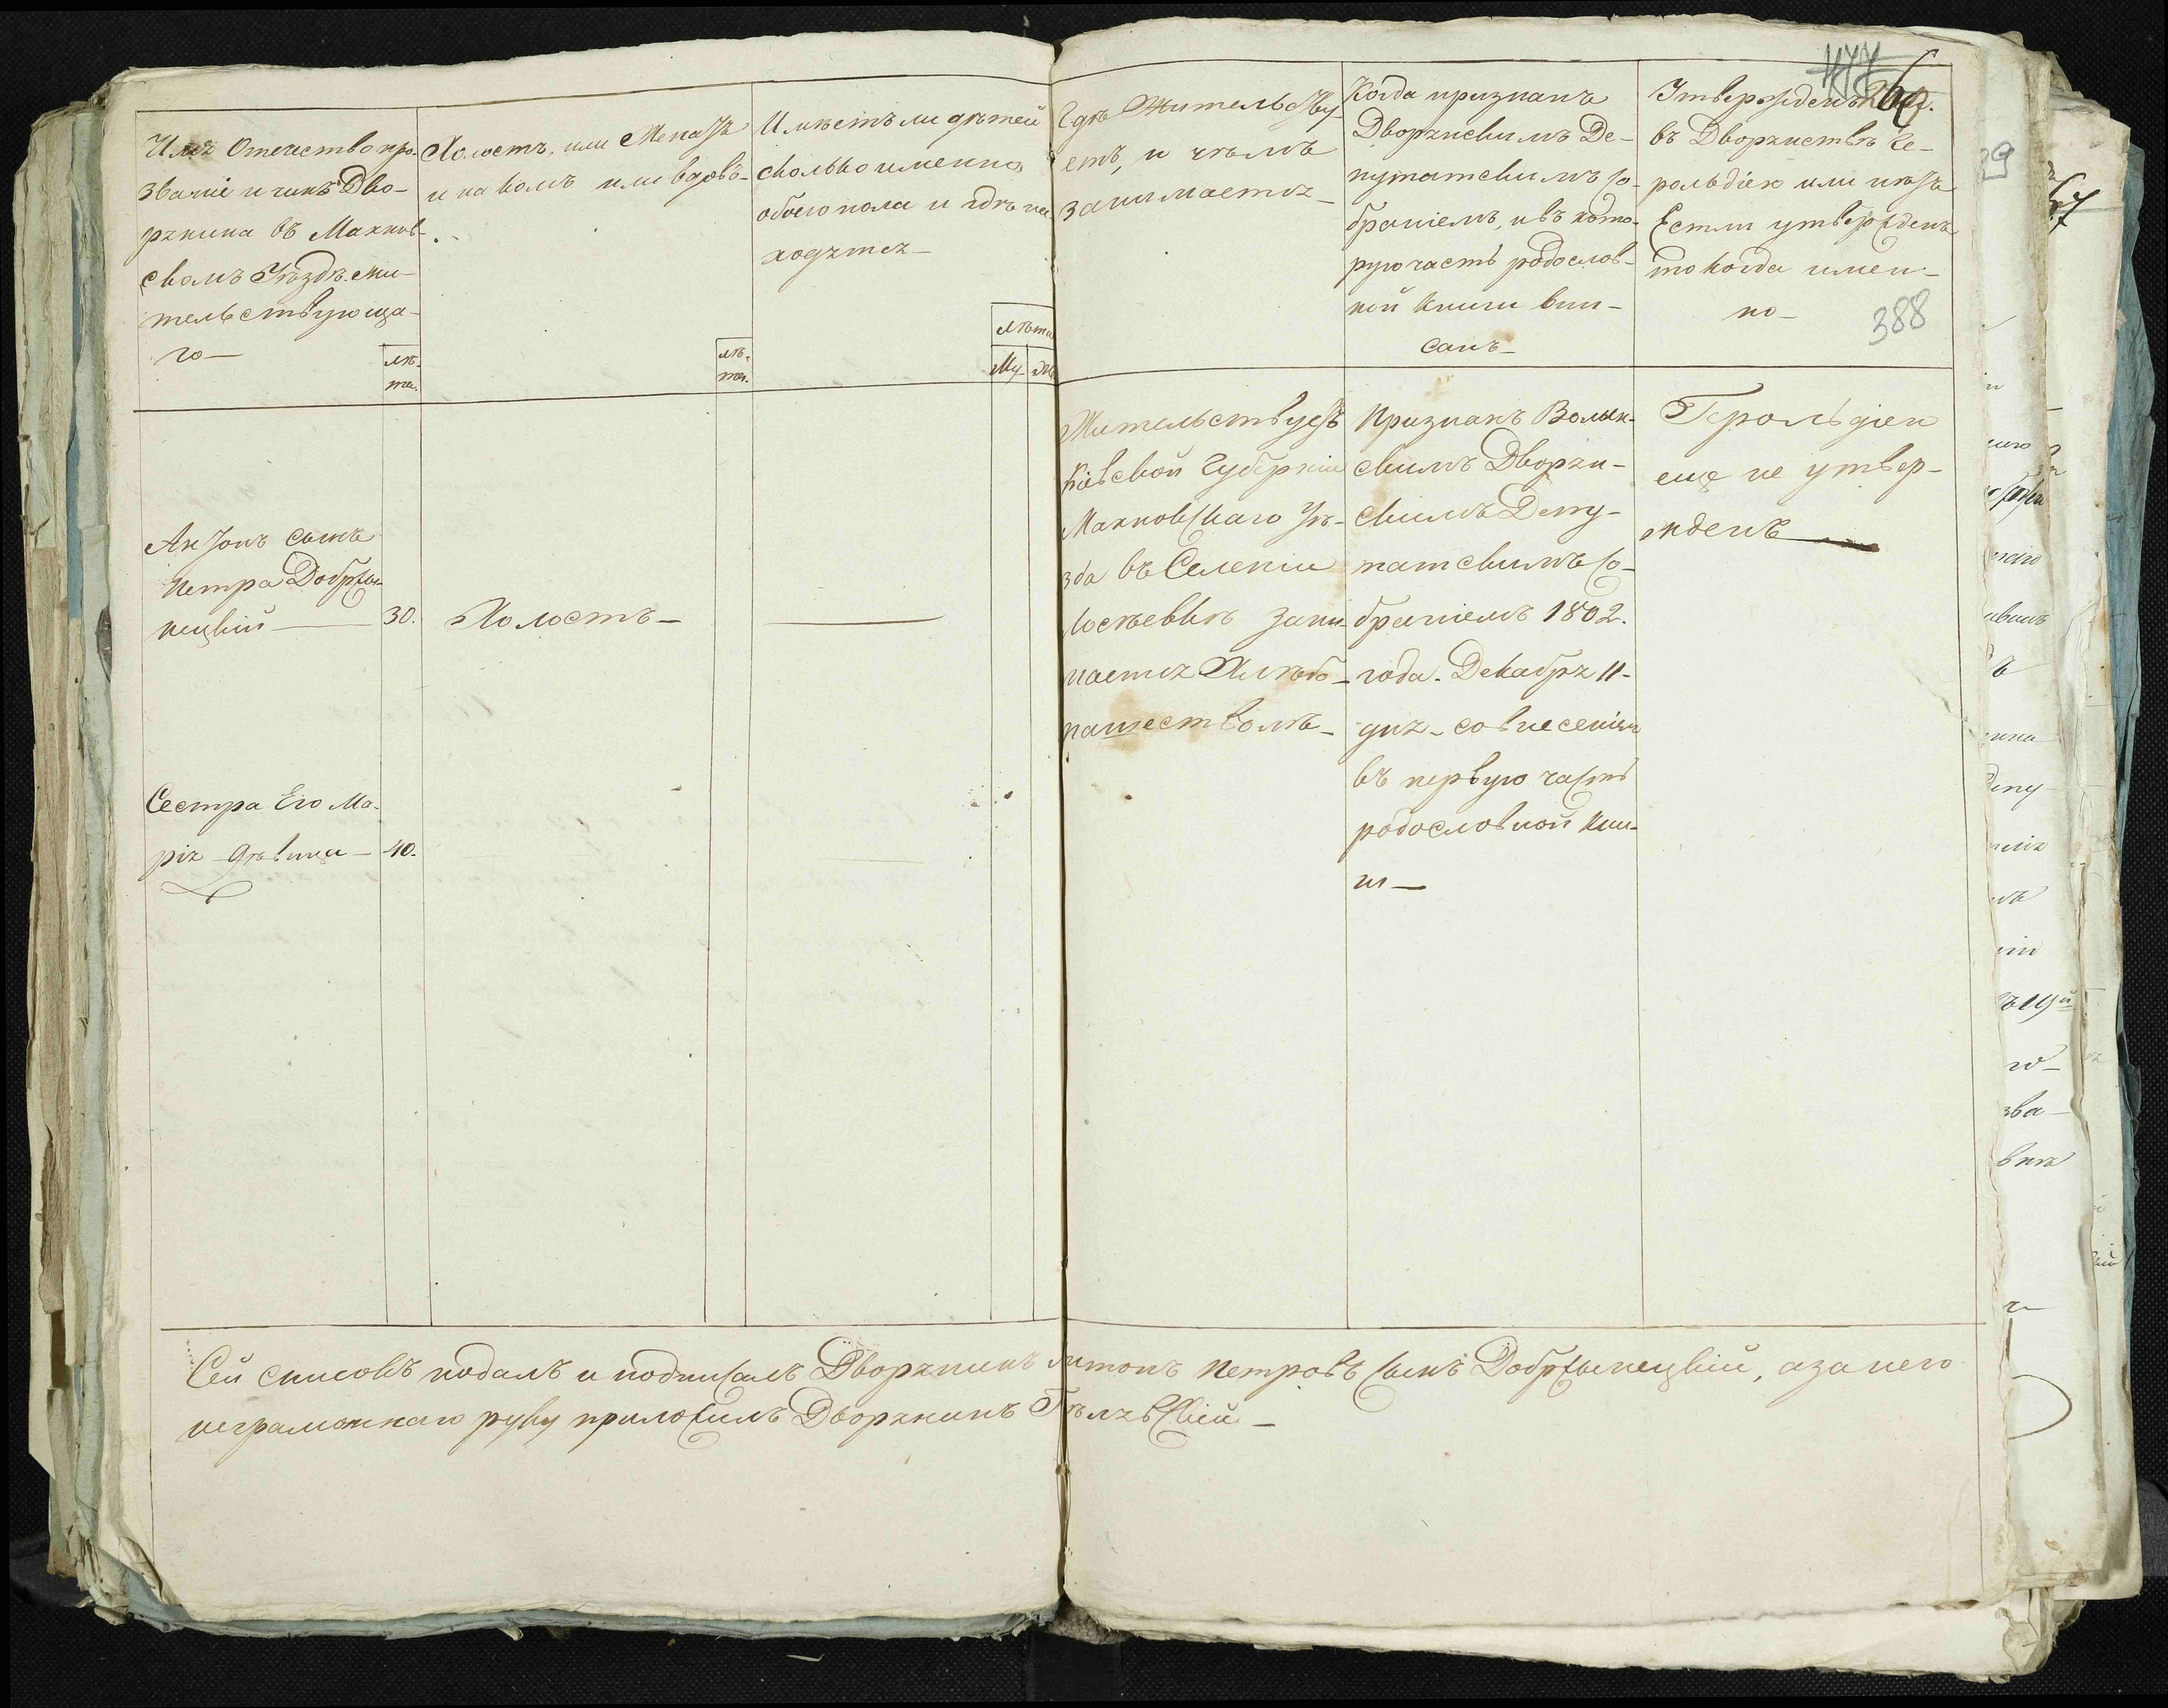 Имя Отечество про-
званіе и чинъ Дво-
рянина въ Махнов-
скомъ Уѣздѣ жи-
тельствующа-
го—
лѣ-
та.
Холостъ, или Женатъ
и на комъ или вдовъ-
лѣ-
та.
Имѣетъ ли дѣтей
сколько именно
обоего пола и гдѣ на
ходятся—
лѣта
Му.
Же
Гдѣ Жительству-
етъ, и чѣмъ
занимается—
Когда признанъ
Дворянскимъ Де-
путатскимъ со-
браніемъ, и въ кото-
рую часть родослов-
ной книги впи-
санъ—
Утвержденъ ли
въ Дворянствѣ Ге-
рольдіею или нѣтъ
Естли утвержденъ
то когда имен-
но—
477
66.
388
Антонъ сынъ
Петра Добржы-
нецкій — 30.
Холостъ—
Сестра Его Ма-
рія дѣвица — 40.
Жительствуетъ
Кіевской Губерніи
Махновскаго Уѣ-
зда въ Селеніи
зани-
мается Хлѣбо-
пашествомъ—
Признанъ Волын-
скимъ Дворян-
скимъ Депу-
татскимъ Со-
браніемъ 1802.
года. Декабря 11-
дня - со внесеніемъ
въ первую часть
родословной кни-
ги—
Герольдіею
еще не утвер-
жденъ—
Сей списокъ подалъ и подписалъ Дворянинъ Антонъ Петровъ сынъ Добржынецкій, а за него
неграмотнаго руку приложилъ Дворянинъ
29
67